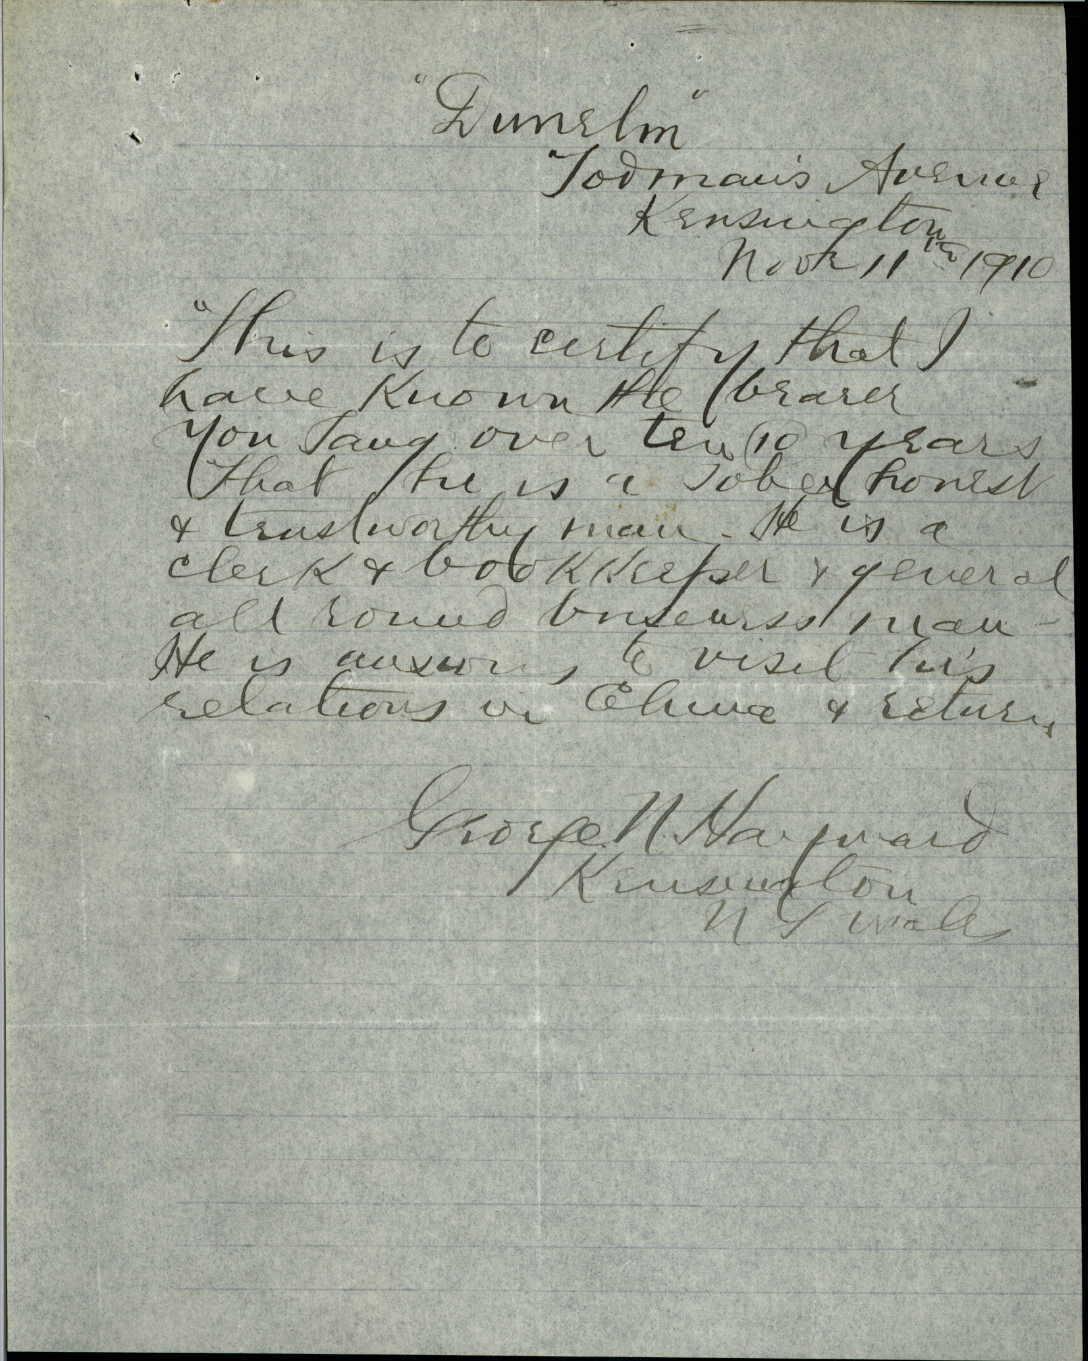 "Dunelm"
Todman's Avenue
Kensington
Novr 11th 1910
"This is to certify that I
have known the bearer
You Tang over ten (10) years
That he is a sober honest
& trustworthy man. He is a
clerk & bookkeeper & general
all round business man -
He is anxious to visit his
relations in China & return,
George N. Hayward
Kensington
N S Wales